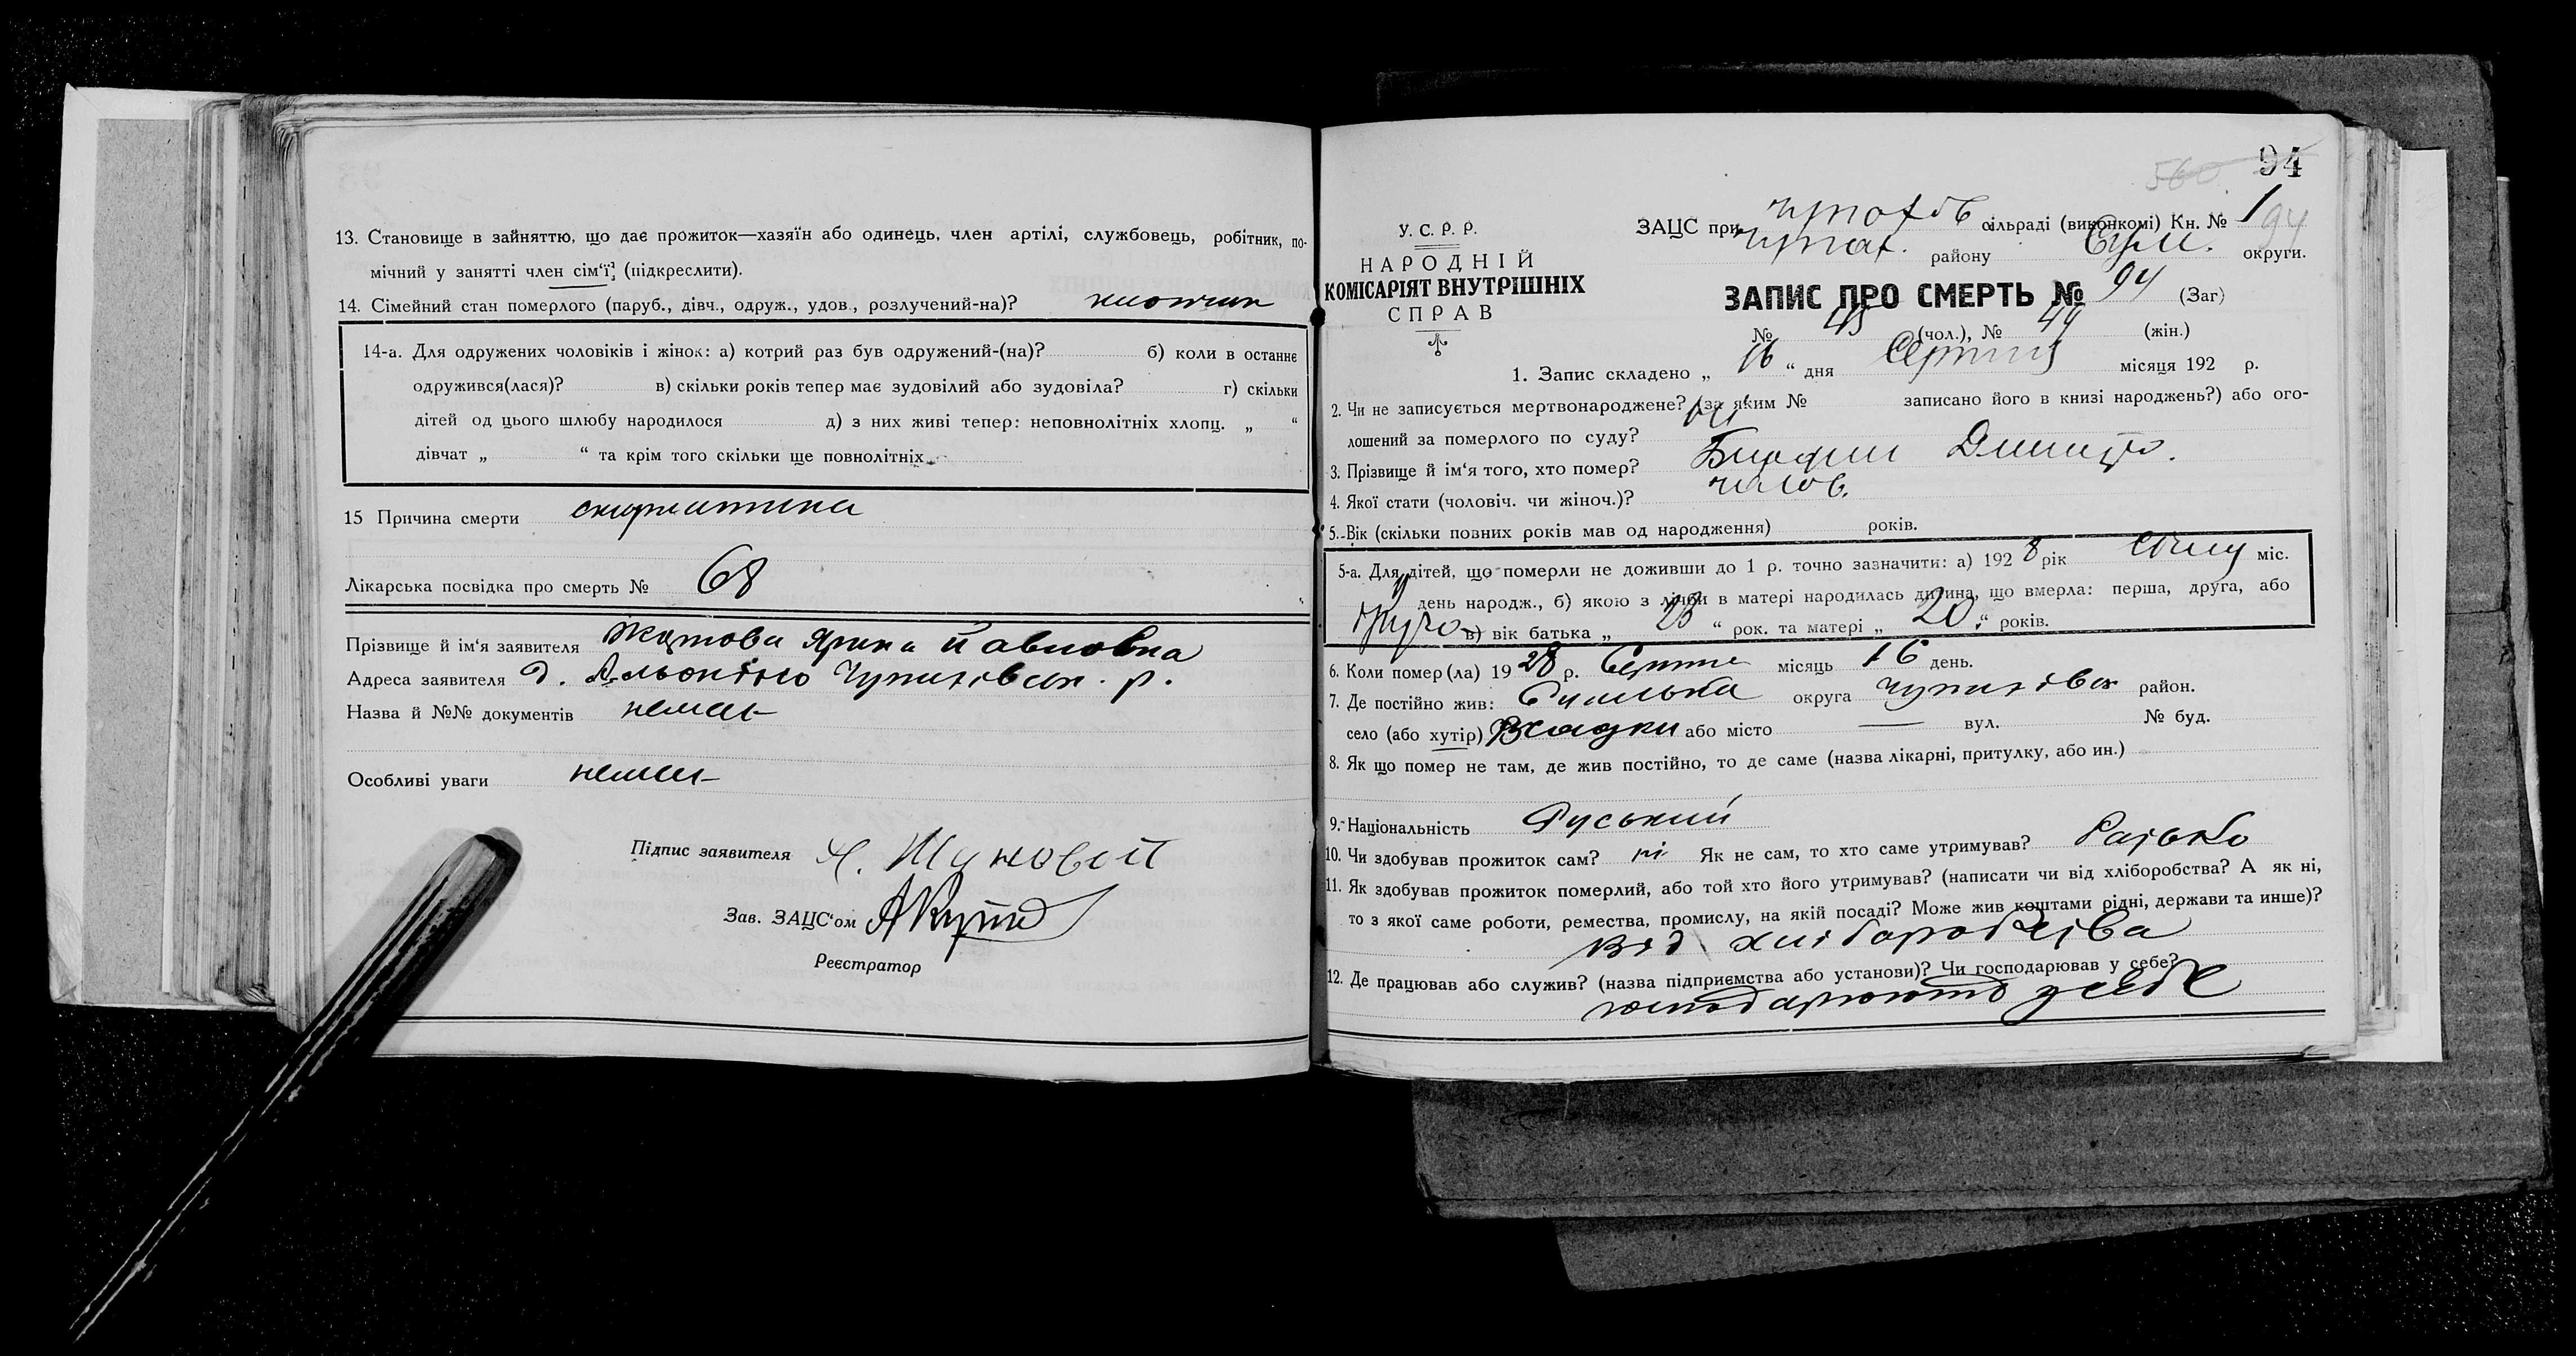 13. Становище в зайняттю, що дає прожиток—хазяїн або одинець, член артілі, службовець, робітник, по-
мічний у занятті член сім‘ї (підкреслити).
14. Сімейний стан померлого (паруб., дівч., одруж., удов., розлучений-на)? хлопчик
14-а. Для одружених чоловіків і жінок: а) котрий раз був одружений-(на)? б) коли в останнє
одружився(лася)? в) скільки років тепер має зудовілий або зудовіла? г) скільки
дітей од цього шлюбу народилося д) з них живі тепер: неповнолітніх хлопц. „ “
дівчат „ “ та крім того скільки ще повнолітніх
15 Причина смерти скарлатина
Лікарська посвідка про смерть № 68
Прізвище й ім‘я заявителя Ярина Павловна
Адреса заявителя д.
Назва й №№ документів немає
Особливі уваги немає
Підпис заявителя
Зав. ЗАЦС‘ом
Реєстратор
94
560
У. С. Р. Р.
НАРОДНІЙ
КОМІСАРІЯТ ВНУТРІШНІХ
СПРАВ
ЗАЦС при сільраді (виконкомі) Кн. № 1
94
району Сум. округи.
ЗАПИС ПРО СМЕРТЬ № 94 (Заг)
№ 45 (чол.), № 49 (жін.)
1. Запис складено „ 16 “ дня Серпня місяця 192 р.
2. Чи не записується мертвонароджене? (за яким № записано його в книзі народжень?) або ого-
лошений за померлого по суду? ні
3. Прізвище й ім‘я того, хто помер? Дмитро.
4. Якої стати (чоловіч. чи жіноч.)? чолов.
5. Вік (скільки повних років мав од народження) років.
5-а. Для дітей, що померли не доживши до 1 р. точно зазначити: а) 192 8 рік Січня міс.
день народж., б) якою з лічби в матері народилась дитина, що вмерла: перша, друга, або
в) вік батька „ 23 “ рок. та матері „ 20 “ років.
6. Коли помер(ла) 19 28 р. Серпня місяць 16 день.
7. Де постійно жив: Сумська округа район.
село (або хутір) або місто — вул. № буд.
8. Як що помер не там, де жив постійно, то де саме (назва лікарні, притулку, або ин.)
9. Національність Руський
10. Чи здобував прожиток сам? ні Як не сам, то хто саме утримував? Батько
11. Як здобував прожиток померлий, або той хто його утримував? (написати чи від хліборобства? А як ні,
то з якої саме роботи, ремества, промислу, на якій посаді? Може жив коштами рідні, держави та инше)?
від хліборобства
12. Де працював або служив? (назва підприємства або установи)? Чи господарював у себе?
у себе